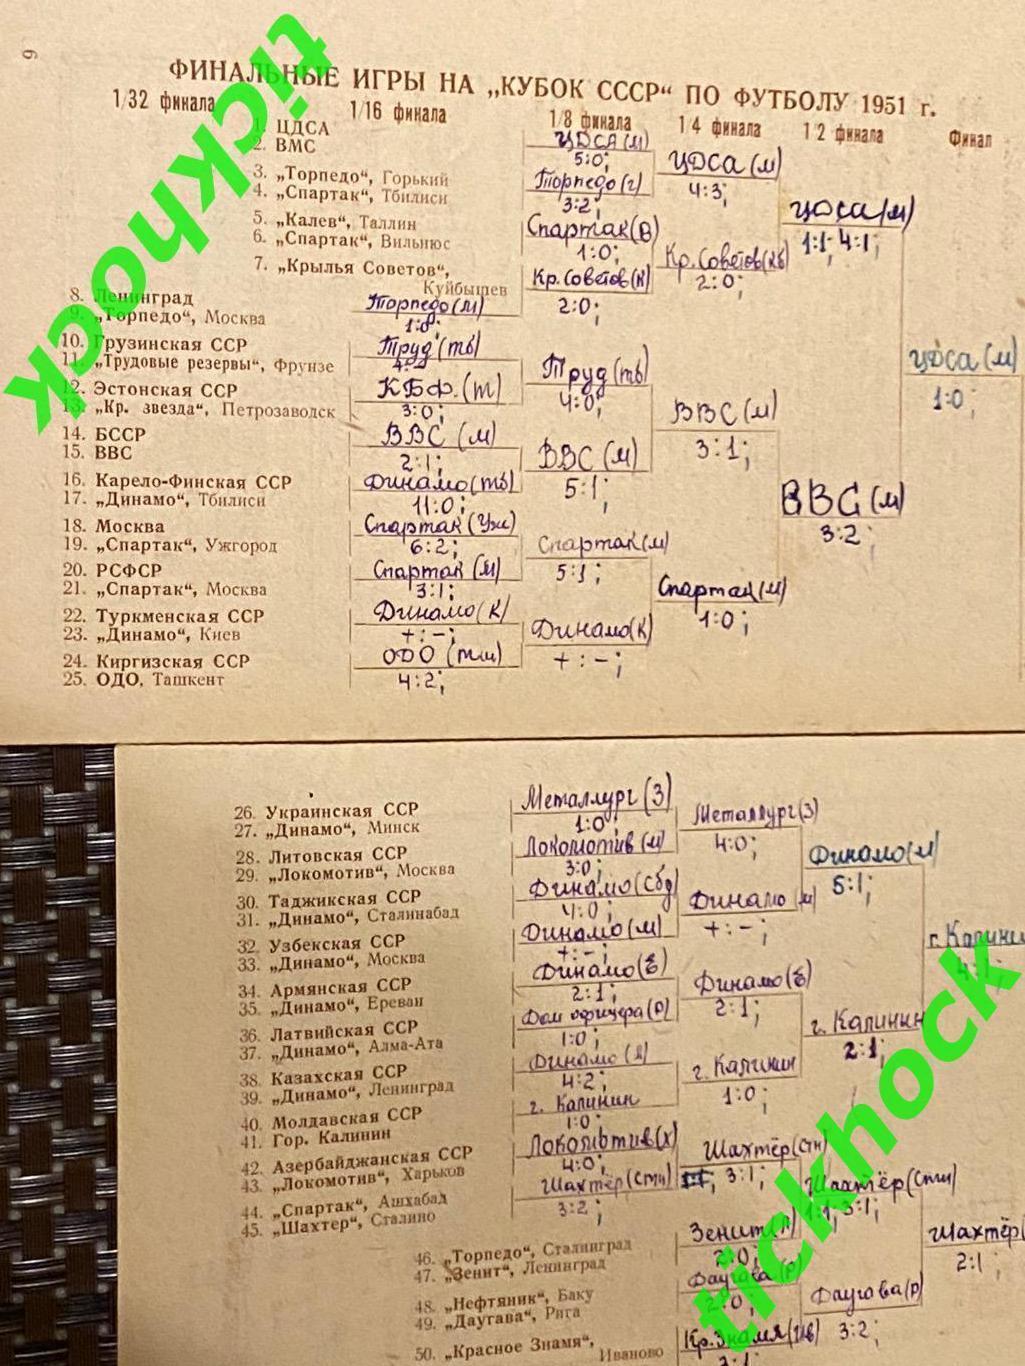 9
ФИНАЛЬНЫЕ ИГРЫ НА „КУБОК СССР“ ПО ФУТБОЛУ 1951 г.
1/32 финала
1/16 финала
1/8 финала
1/4 финала
1/2 финала
Финал
1. ЦДСА
2. ВМС
3. „Торпедо“, Горький
4. „Спартак“, Тбилиси
5. „Калев“, Таллин
6. „Спартак“, Вильнюс
7. „Крылья Советов“,
Куйбышев
8. Ленинград
9. „Торпедо“, Москва
10. Грузинская ССР
11. „Трудовые резервы“, Фрунзе
12. Эстонская ССР
13. „Кр. звезда“, Петрозаводск
14. БССР
15. ВВС
16. Карело-Финская ССР
17. „Динамо“, Тбилиси
18. Москва
19. „Спартак“, Ужгород
20. РСФСР
21. „Спартак“, Москва
22. Туркменская ССР
23. „Динамо“, Киев
24. Киргизская ССР
25. ОДО, Ташкент
Торпедо (м)
1:0;
Труд (тб)
КБФ. (т)
3:0;
ВВС (м)
2:1;
Динамо (тб)
11:0;
Спартак (Уж)
6:2;
Спартак (м)
3:1;
Динамо (к)
+:-;
ОДО (тш)
4:2;
ЦДСА (м)
5:0;
Торпедо (г)
3:2;
Спартак (В)
1:0;
Кр. Советов (к)
2:0;
Труд (тб)
4:0;
ВВС (м)
5:1;
Спартак (м)
5:1;
Динамо (к)
+:-;
ЦДСА (м)
4:3;
Кр. Советов (кб)
2:0;
ВВС (м)
3:1;
Спартак (м)
1:0;
ЦДСА (м)
1:1; 4:1;
ВВС (м)
3:2;
ЦДСА (м)
1:0;
26. Украинская ССР
27. „Динамо“, Минск
28. Литовская ССР
29. „Локомотив“, Москва
30. Таджикская ССР
31. „Динамо“, Сталинабад
32. Узбекская ССР
33. „Динамо“, Москва
34. Армянская ССР
35. „Динамо“, Ереван
36. Латвийская ССР
37. „Динамо“, Алма-Ата
38. Казахская ССР
39. „Динамо“, Ленинград
40. Молдавская ССР
41. Гор. Калинин
42. Азербайджанская ССР
43. „Локомотив“, Харьков
44. „Спартак“, Ашхабад
45. „Шахтер“, Сталино
46. „Торпедо“, Сталинград
47. „Зенит“, Ленинград
48. „Нефтяник“, Баку
49. „Даугава“, Рига
50. „Красное Знамя“,
Иваново
Металлург (З)
1:0;
Локомотив (м)
3:0;
Динамо (Сбд)
4:0;
Динамо (м)
+:-;
Динамо (Е)
2:1;
Дом офицера (р)
1:0;
Динамо (л)
4:2;
г. Калинин
1:0;
Локомотив (х)
4:0;
Шахтёр (стн)
3:2;
Металлург (З)
4:0;
Динамо (м)
+:-;
Динамо (Е)
2:1;
г. Калинин
1:0;
Шахтёр (стн)
3:1;
Зенит (л)
2:0;
Даугава (р)
2:0;
Кр. Знамя (Ив)
Динамо (м)
5:1;
г. Калинин
2:1;
Шахтёр (стн)
1:1; 3:1;
Даугава (р)
3:2;
г. Калинин
4:1;
Шахтёр (
2:1;
tickhock
tickhock